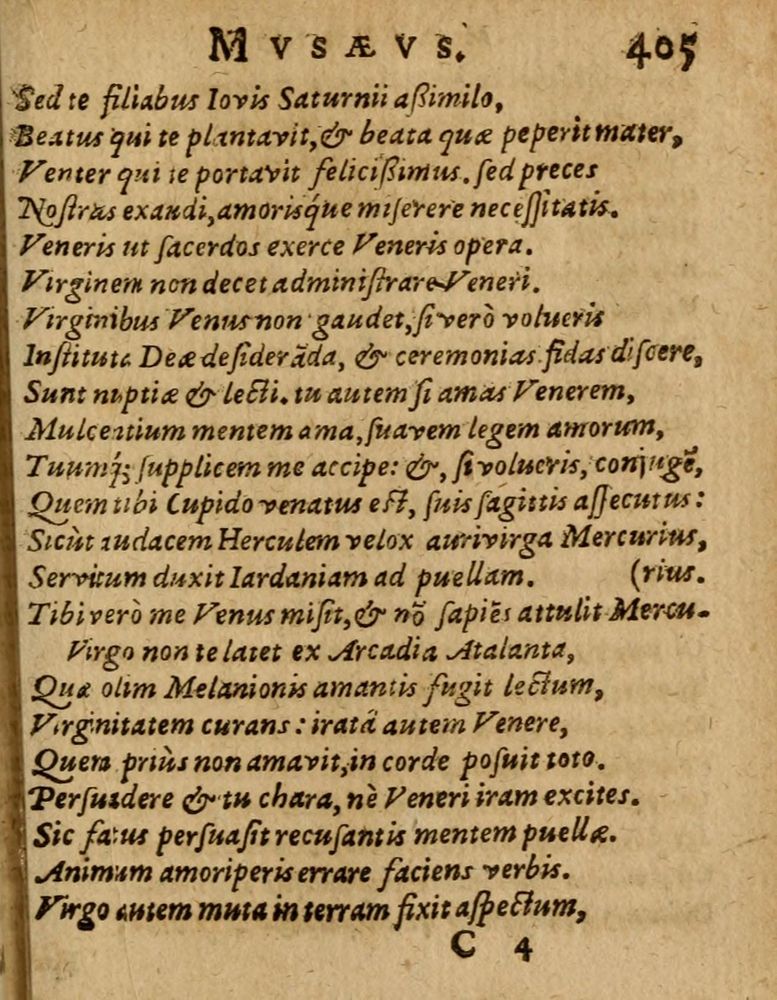 MVSÆVS. 405
Sed te filiabus Iovis Saturnii aßimilo,
Beatus qui te plantavit, & beata quæ peperit mater,
Venter qui te portavit felicißimus. ſed preces
Noſtras exaudi, amorisq́ue miſerere neceſſitatis.
Veneris ut ſacerdos exerce Veneris opera.
Virginem non decet adminiſtrare Veneri.
Virginibus Venus non gaudet, ſi verò volueris
Inſtituta Deæ deſiderãda, & ceremonias fidas diſcere,
Sunt nuptiæ & lecti. tu autem ſi amas Venerem,
Mulcentium mentem ama, ſuavem legem amorum,
Tuumq́; ſupplicem me accipe: &, ſi volueris, conjugẽ,
Quem tibi Cupido venatus eſt, ſuis ſagittis aſſecutus:
Sicùt audacem Herculem velox aurivirga Mercurius,
Servitum duxit Iardaniam ad puellam. (rius.
Tibi verò me Venus miſit, & nõ ſapiẽs attulit Mercu-
Virgo non te latet ex Arcadia Atalanta,
Quæ olim Melanionis amantis fugit lectum,
Virginitatem curans: iratâ autem Venere,
Quem priùs non amavit, in corde poſuit toto.
Perſuadere & tu chara, nè Veneri iram excites.
Sic fatus perſuaſit recuſantis mentem puellæ.
Animum amoriperis errare faciens verbis.
Virgo autem muta in terram fixit aſpectum,
C 4